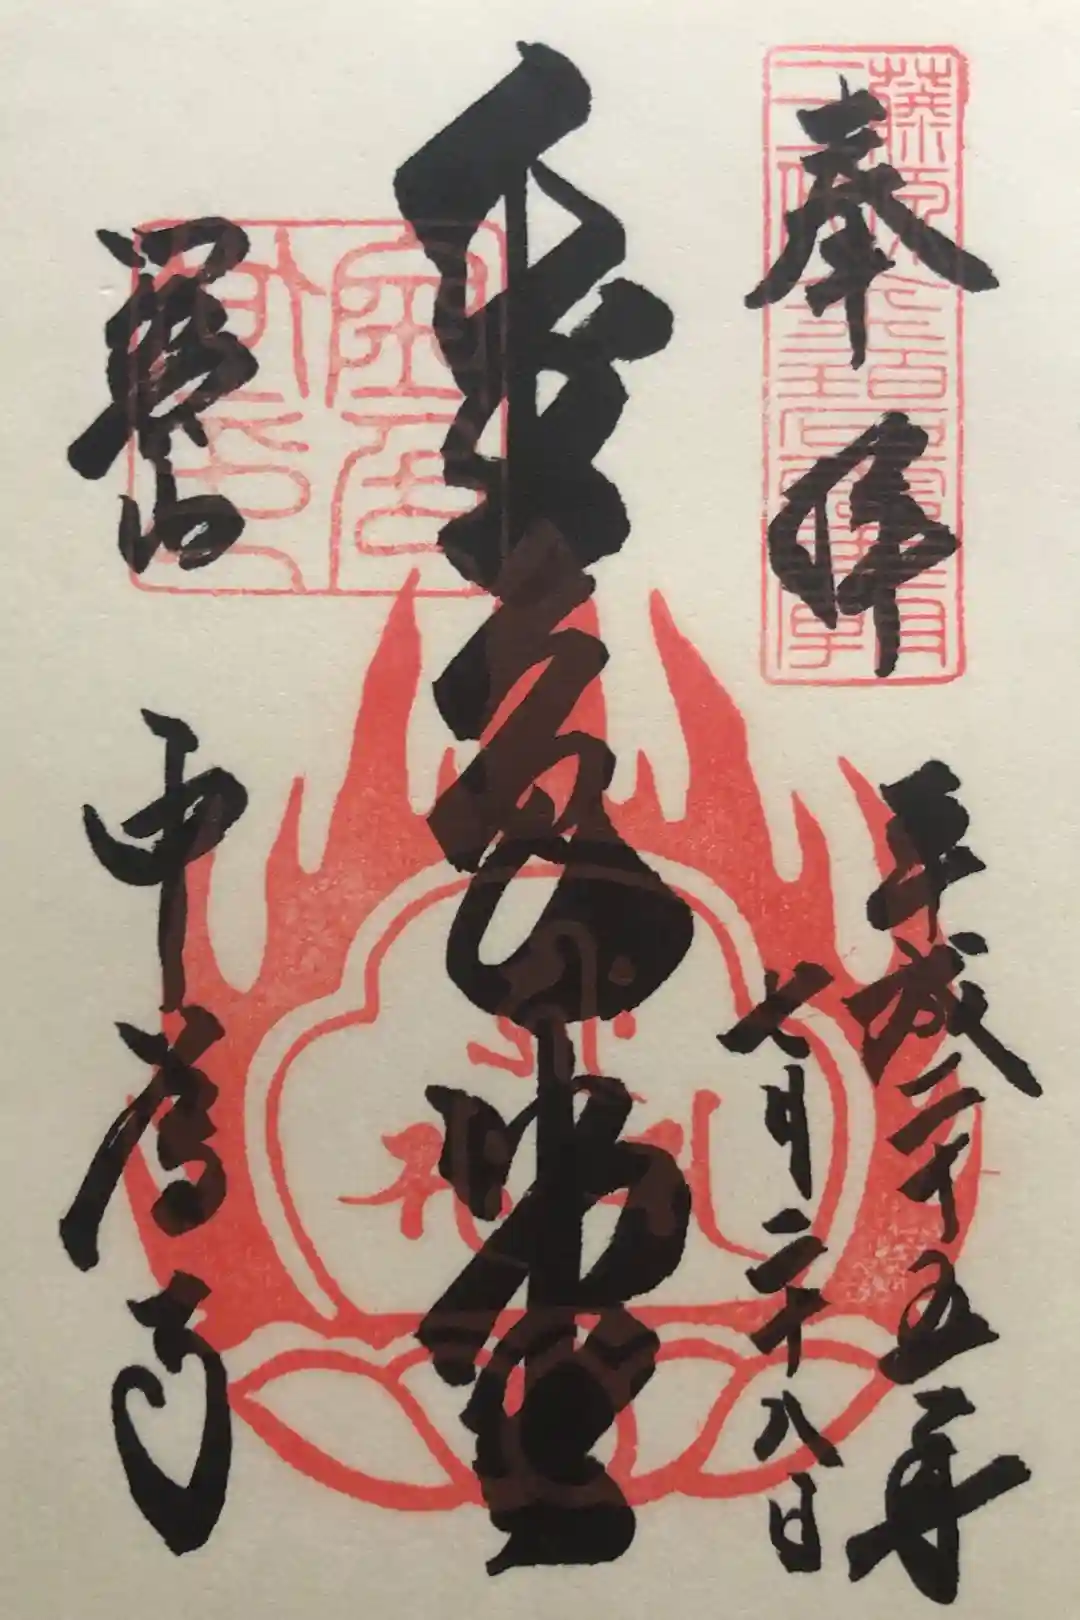 奉拝
平成二十五年
七月二十八日
金色堂
關山
中尊寺